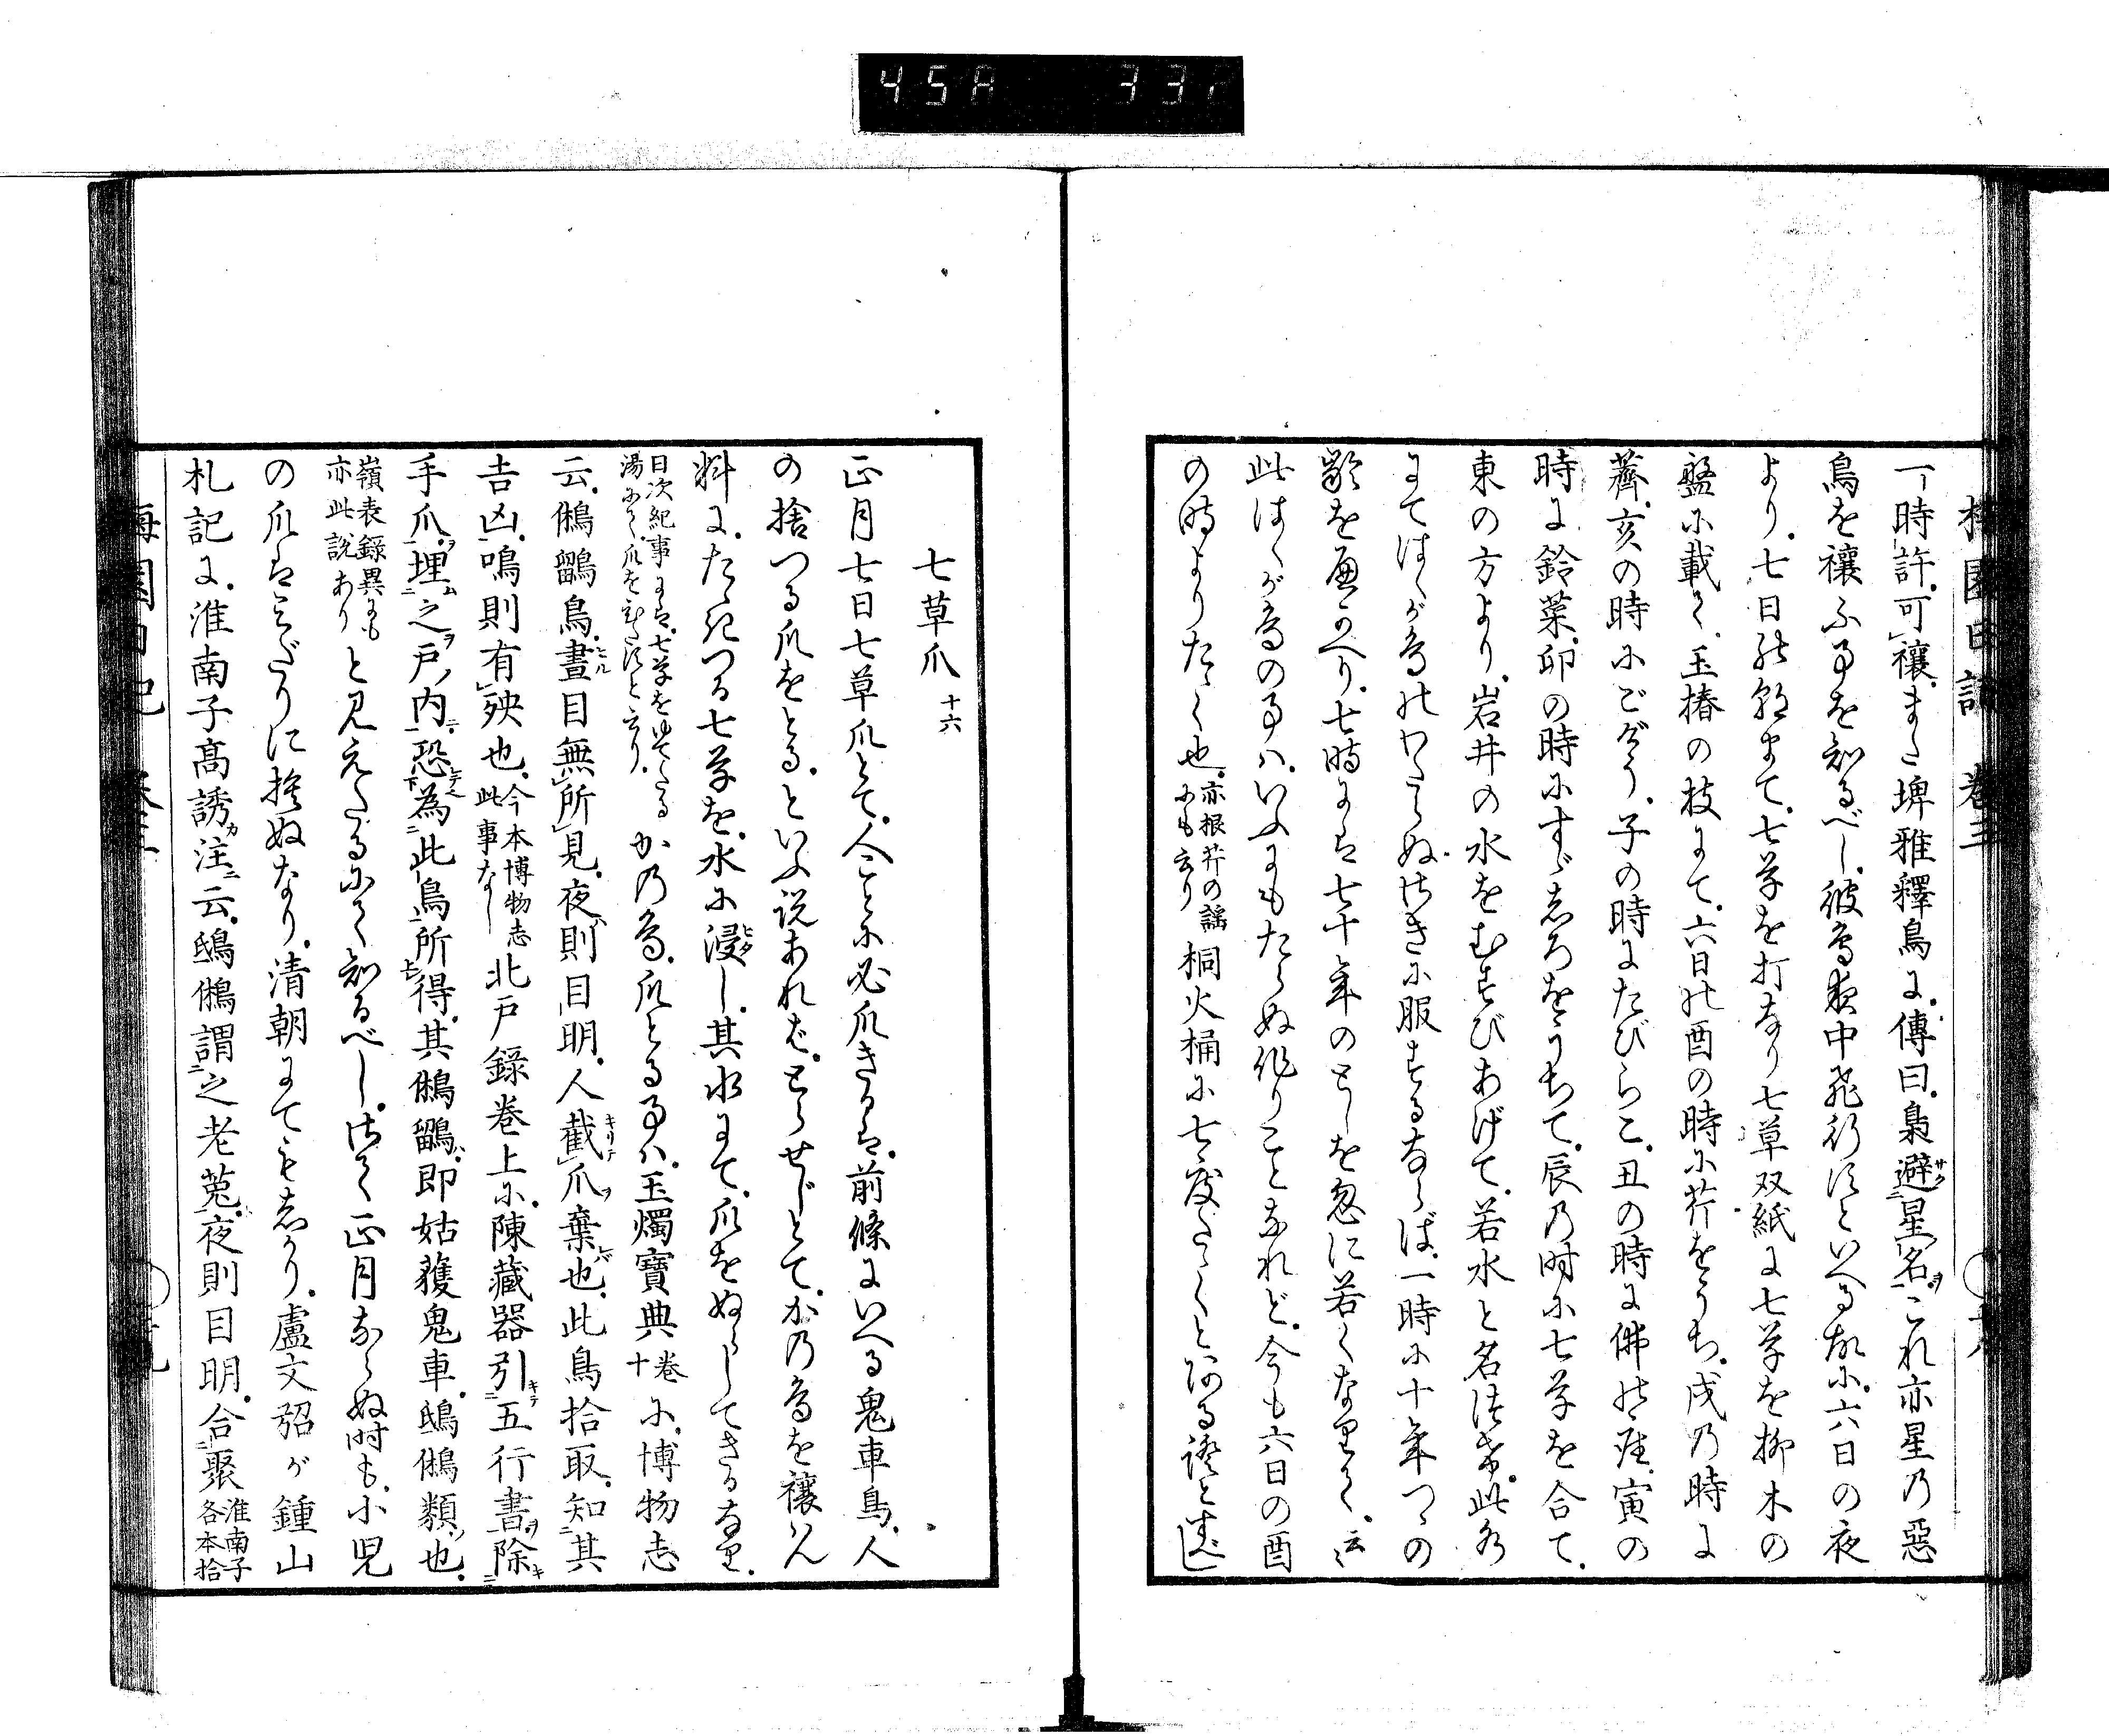 45A 33
梅園日記 巻三
一時許可禳また埤雅釋鳥に傳曰梟避星名これ亦星乃惡
鳥を禳ふ事を知るべし彼鳥夜中飛行すといへる故に六日の夜
より七日の朝まて七草を打なり七草双紙に七草を柳木の
盤に載て玉椿の枝にて六日の酉の時に芹をうち戌乃時に
薺亥の時にごぎやう子の時にたびらこ丑の時に佛の座寅の
時に鈴菜卯の時にすゞしろをうちて辰乃時に七草を合て
東の方より岩井の水をむすびあげて若水と名づけ此水
にてはくが鳥のわたらぬさきに服するならば一時に十年づゝの
齡を經かへり七時には七十年のとしを忽に若くなりて云々
此はくが鳥の事はいふにもたらぬ作りことなれど今も六日の酉
の時よりたゝく也亦根芹の謠にも云り桐火桶に七度たゝくとある證とすべし
七草爪 十六
正月七日七草爪とて人ことに必爪きるは前條にいへる鬼車鳥人
の捨つる爪をとるといふ説あればとらせじとてかの鳥を禳はん
料にたゝきつる七草を水に浸し其水にて爪をぬらしてきるなり
日次紀事には七草をゆでたる湯にて爪をひたすと云りかの鳥爪とる事は玉燭寶典卷十に博物志
云鵂鶹鳥晝目無所見夜則目明人截爪棄也此鳥拾取知其
吉凶鳴則有殃也今本博物志此事なし北戸録卷上に陳藏器引五行書除
手爪埋之戸内恐為此鳥所得其鵂鶹即姑獲鬼車鴟鵂類也
嶺表録異にも亦此説ありと見えたるにて知るべしさて正月ならぬ時も小児
の爪はみだりに捨ぬなり清朝にてもしかり盧文弨が鍾山
札記に淮南子高誘注云鴟鵂謂之老菟夜則目明合聚淮南子各本拾
梅園日記 巻三